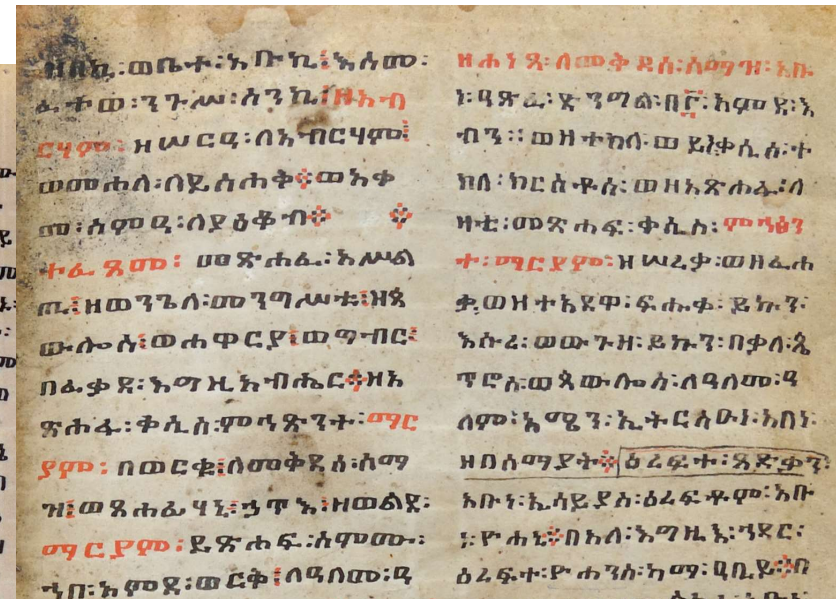 ወቤተ፡አቡኪ፡እስመ፡
ፈተወ፡ንጉሥ፡ስንኪ፡ዘአብ
ርሃም፡ዘሠርዒ፡ለአብርሃም፡
ወመሐለ፡በይስሐቅ፨ወአቀ
መ፡ስምዒ፡ለያዕቆብ፨
ተፈጸመ፡መጽሐፈ፡አሥል
ጢ፡ዘወንጌለ፡መንግሥቱ፡ዘጳ
ውሎስ፡ወሐዋርያ፡ወግብር፡
በፈቃደ፡እግዚአብሔር፨ዘአ
ጽሐፈ፡ቀሲስ፡ምኅጽንተ፡ማር
ያም፡በወርቁ፡ለመቅደሰ፡ሰማ
ዝ፡ወጸሐፊሃኒ፡ኃጥእ፡ዘወልደ፡
ማርያም፡ይጽሐፍ፡ስምሙ፡
ኀበ፡አምደ፡ወርቅ፡ለዓለመ፡ዓ
ዘሐነጸ፡ለመቅደሰ፡ሰማዝ፡አቡ
ነ፡ዓጽፈ፡ድንግል፡በ፫፡አምደ፡እ
ብን፡፡ወዘተከለ፡ወይነ፡ቀሲስ፡ተ
ክለ፡ክርስቶስ፡ወዘአጽሐፈ፡ለ
ዛቲ፡መጽሐፍ፡ቀሲስ፡ምኅፅን
ተ፡ማርያም፡ዘሠረቃ፡ወዘፈሐ
ቃ፡ወዘተአደዋ፡ፍሑቀ፡ይኩን፡
እሱረ፡ወውጉዘ፡ይኩን፡በቃለ፡ጴ
ጥሮስ፡ወጳውሎስ፡ለዓለመ፡ዓ
ለም፡አሜን፡ኢትርስዑነ፡አበነ፡
ዘበሰማያት፨ዕረፍተ፡ጻድቃን፡
አቡነ፡ኤሳይያስ፡ዕረፍቶም፡አቡ
ነ፡ዮሐኒ፨በአለ፡እግዚእ፡ኀደር፡
ዕረፍተ፡ዮሐንስ፡ካማ፡ዒቢይ፨በ